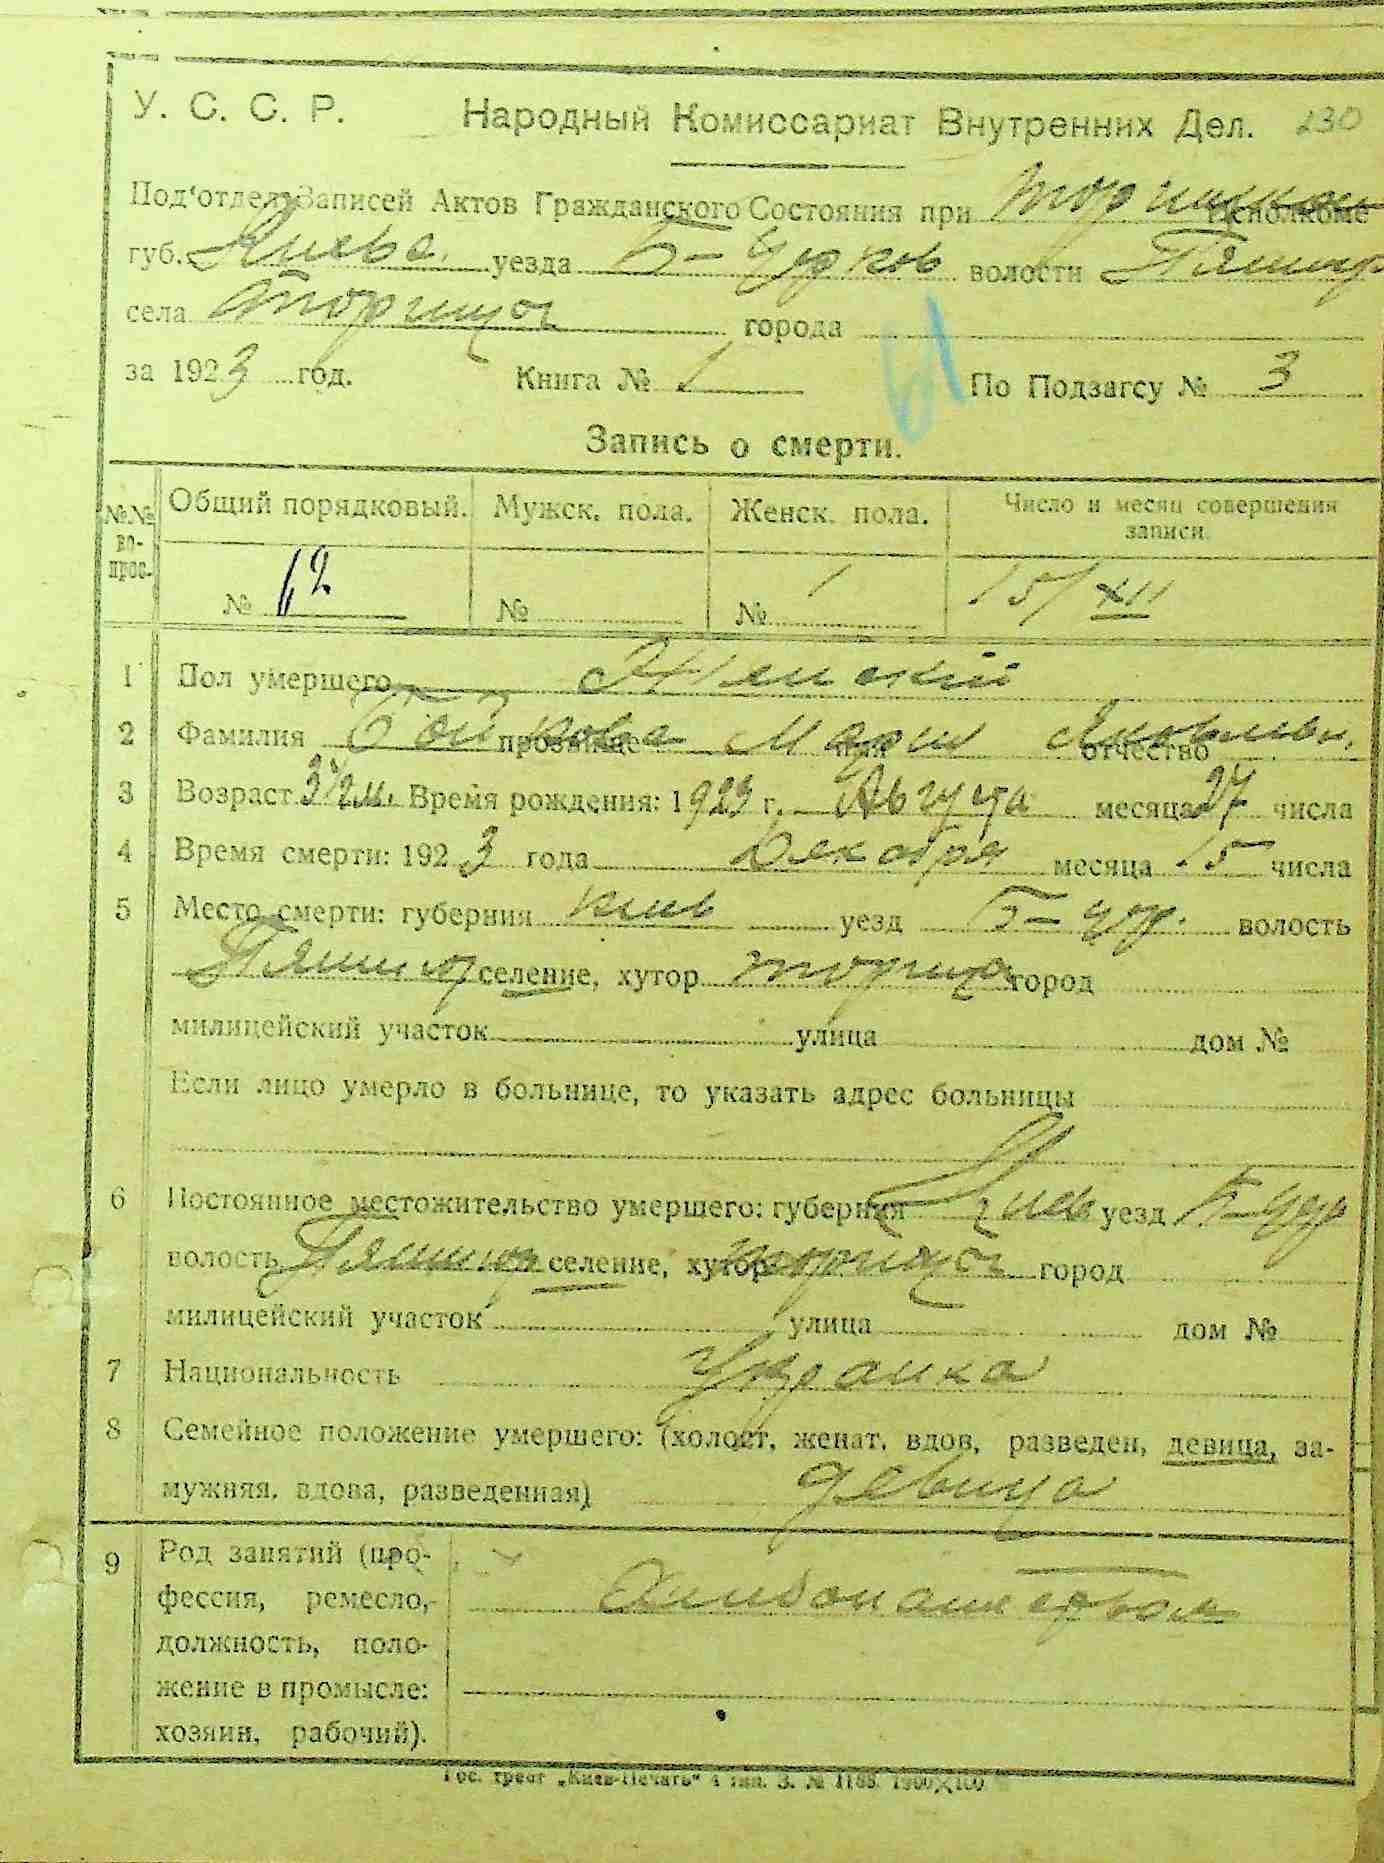 У. С. С. Р. Народный Комиссариат Внутренних Дел. 230
Под‘отдел Записей Актов Гражданского Состояния при Исполкоме
губ. Киевс. уезда Б-Церков волости
села Торчица города
за 1923 год. Книга № 1 61 По Подзагсу № 3
Запись о смерти.
№№ во-прос. Общий порядковый. Мужск. пола. Женск. пола. Число и месяц совершения записи.
№ 62 № № 1 15/XII
1 Пол умершего Женский
2 Фамилия прозвище Мария имя Яковлевн. отчество
3 Возраст 3½ м. Время рождения: 1923 г. Августа месяца 27 числа
4 Время смерти: 1923 года Декабря месяца 15 числа
5 Место смерти: губерния Киев уезд Б-Цер. волость
селение, хутор Торчица город
милицейский участок улица дом №
Если лицо умерло в больнице, то указать адрес больницы
6 Постоянное местожительство умершего: губерния Киев уезд Б-Цер
волость селение, хутор Торчица город
милицейский участок улица дом №
7 Национальность Украинка
8 Семейное положение умершего: (холост, женат, вдов, разведен, девица, за-
мужняя, вдова, разведенная) девица
9 Род занятий (про-
фессия, ремесло,
должность, поло-
жение в промысле:
хозяин, рабочий).
Гос. трест „Киев-Печать“ 4 тип. З. № 1188. 1900×100